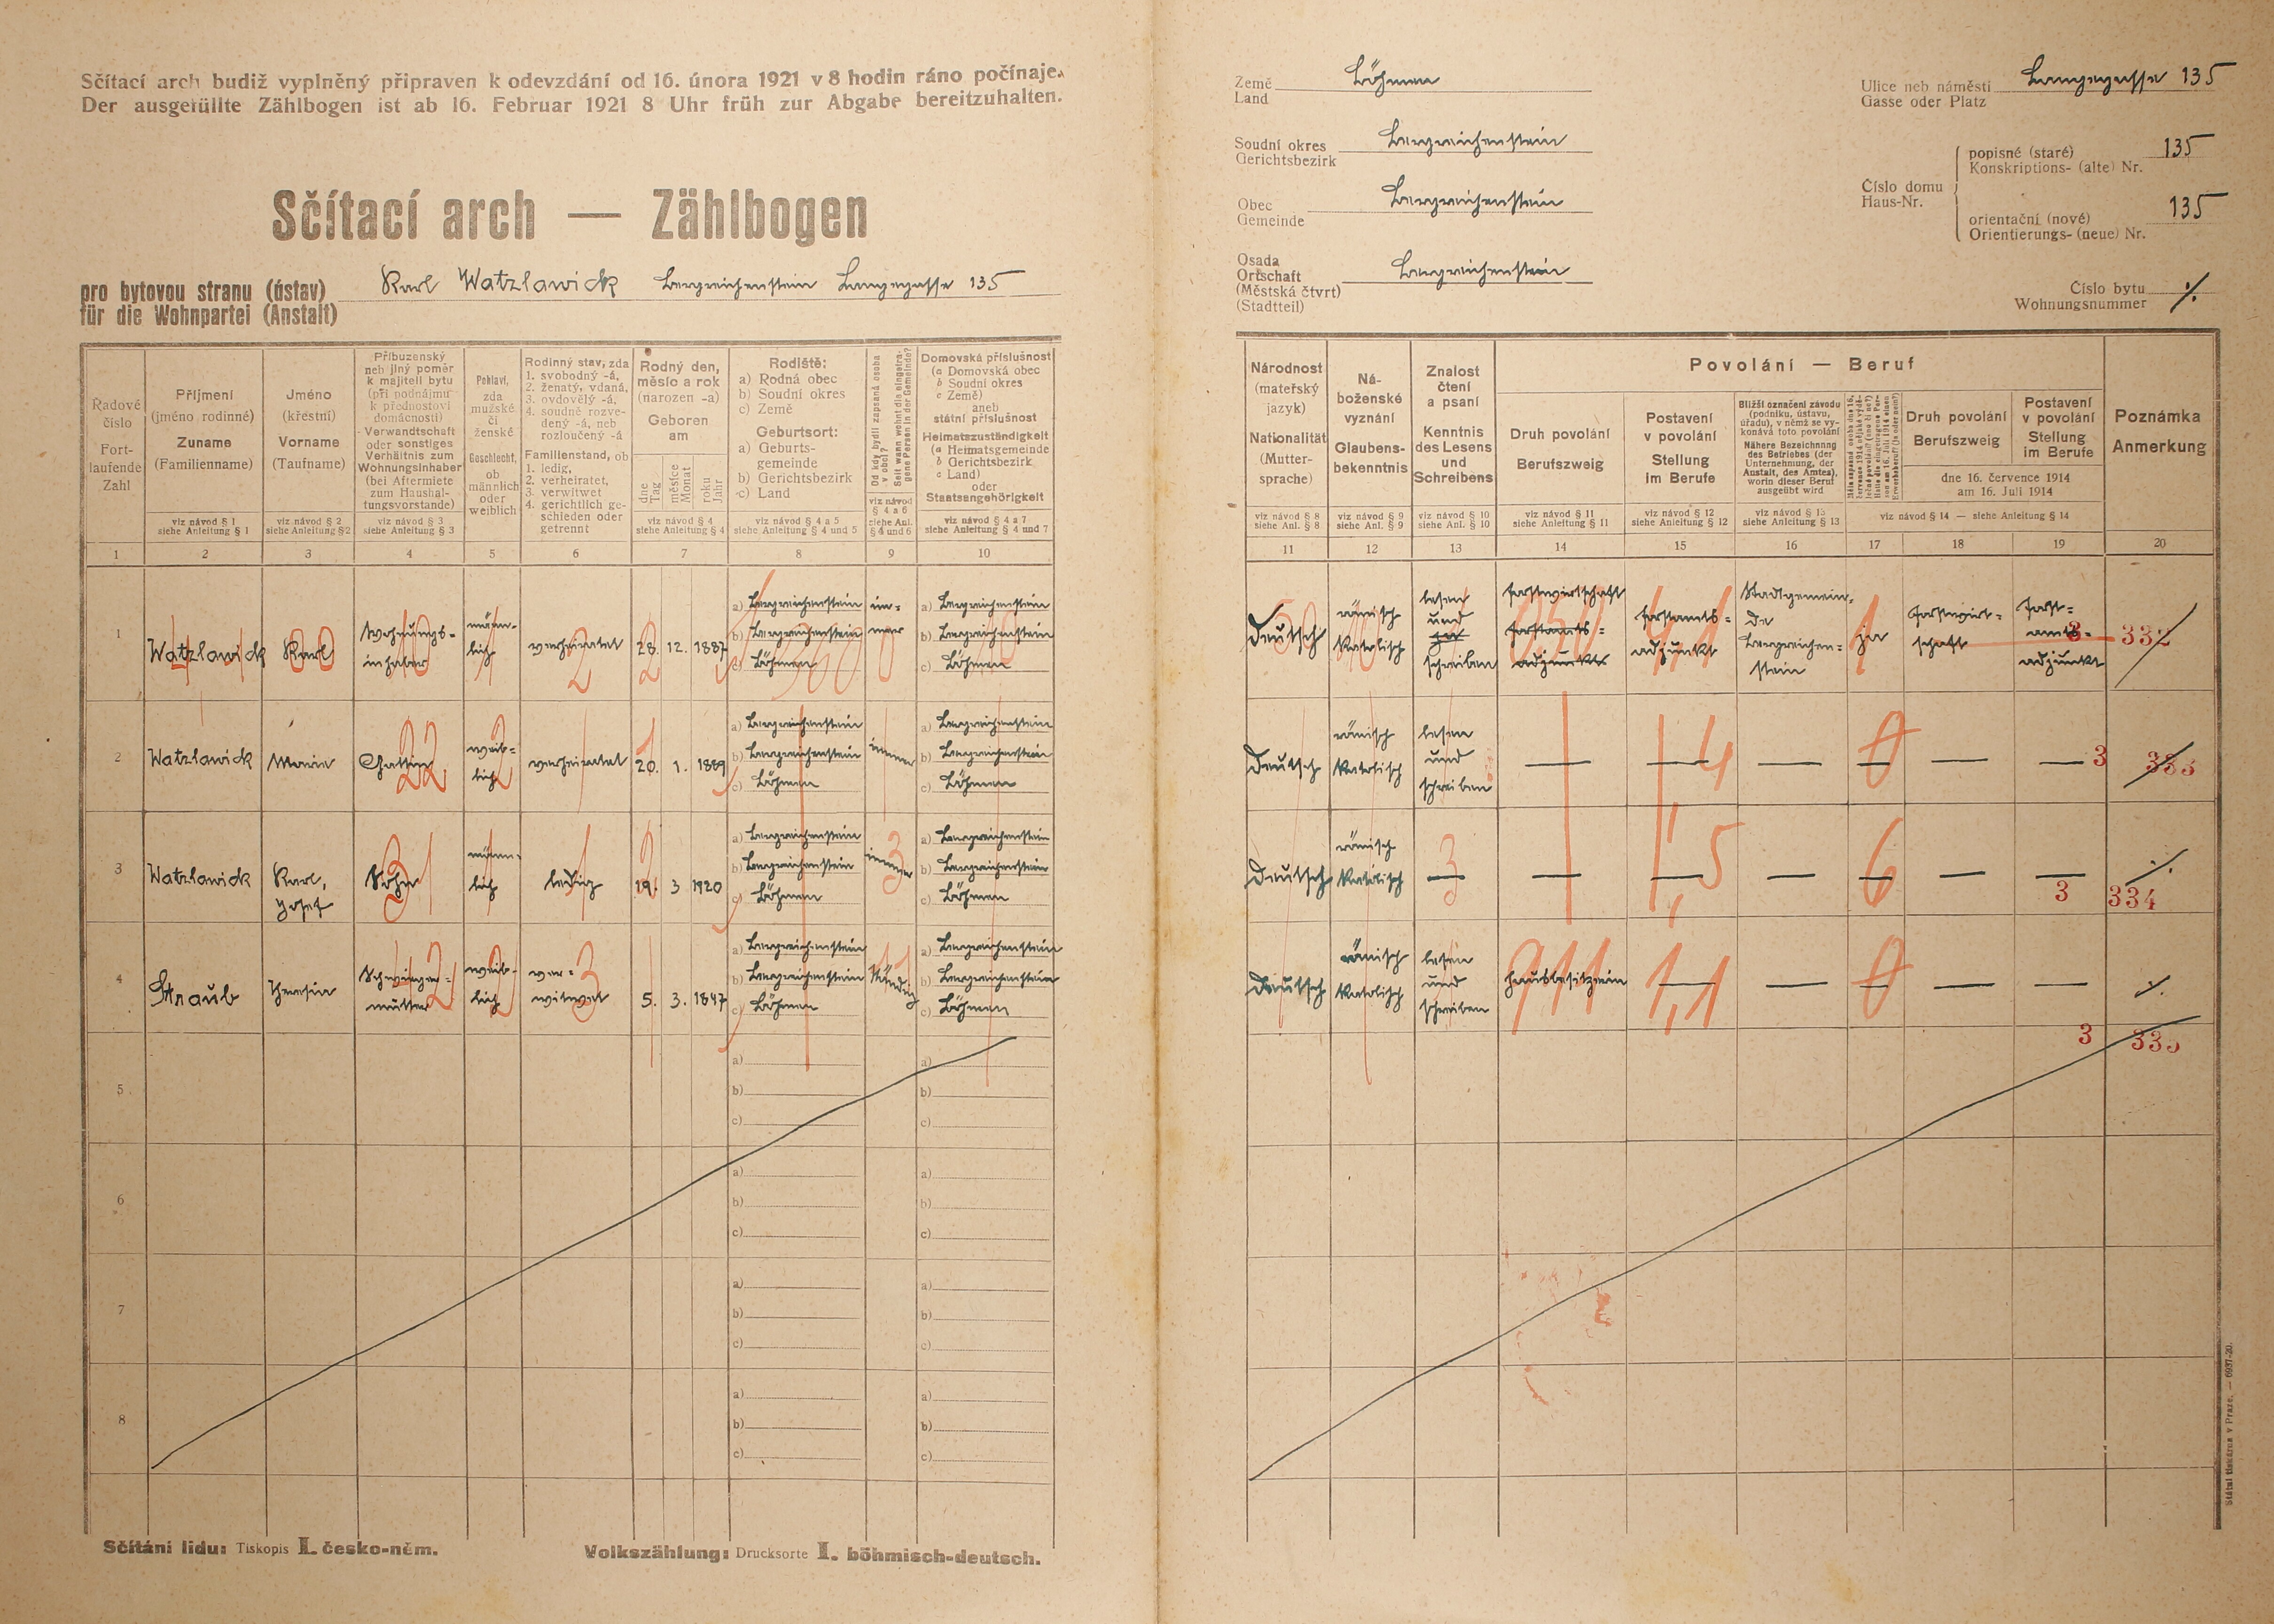 Sčítací arch budiž vyplněný připraven k odevzdání od 16. února 1921 v 8 hodin ráno počínaje.
Der ausgefüllte Zählbogen ist ab 16. Februar 1921 8 Uhr früh zur Abgabe bereitzuhalten.
Sčítací arch — Zählbogen
pro bytovou stranu (ústav)
für die Wohnpartei (Anstalt)
Karl Watzlawick Bergreichenstein Langegasse 135
Země
Land
Böhmen
Soudní okres
Gerichtsbezirk
Bergreichenstein
Obec
Gemeinde
Bergreichenstein
Osada
Ortschaft
(Městská čtvrt)
(Stadtteil)
Bergreichenstein
Ulice neb náměstí
Gasse oder Platz
Langegasse 135
Číslo domu
Haus-Nr.
popisné (staré)
Konskriptions- (alte) Nr.
135
orientační (nové)
Orientierungs- (neue) Nr.
135
Číslo bytu
Wohnungsnummer
Řadové
číslo
Fort-
laufende
Zahl
Příjmení
(jméno rodinné)
Zuname
(Familienname)
viz návod § 1
siehe Anleitung § 1
Jméno
(křestní)
Vorname
(Taufname)
viz návod § 2
siehe Anleitung § 2
Příbuzenský
neb jiný poměr
k majiteli bytu
(při podnájmu
k přednostovi
domácnosti)
Verwandtschaft
oder sonstiges
Verhältnis zum
Wohnungsinhaber
(bei Aftermiete
zum Haushal-
tungsvorstande)
viz návod § 3
siehe Anleitung § 3
Pohlaví,
zda
mužské
či
ženské
Geschlecht,
ob
männlich
oder
weiblich
Rodinný stav, zda
1. svobodný -á,
2. ženatý, vdaná,
3. ovdovělý -á,
4. soudně rozve-
dený -á, neb
rozloučený -á
Familienstand, ob
1. ledig,
2. verheiratet,
3. verwitwet
4. gerichtlich ge-
schieden oder
getrennt
Rodný den,
měsíc a rok
(narozen -a)
Geboren
am
dne
Tag
měsíce
Monat
roku
Jahr
viz návod § 4
siehe Anleitung § 4
Rodiště:
a) Rodná obec
b) Soudní okres
c) Země
Geburtsort:
a) Geburts-
gemeinde
b) Gerichtsbezirk
c) Land
viz návod § 4 a 5
siehe Anleitung § 4 und 5
Od kdy bydlí zapsaná osoba
v obci?
Seit wann wohnt die eingetra-
gene Person in der Gemeinde?
viz návod
§ 4 a 6
siehe Anl.
§ 4 und 6
Domovská příslušnost
(a Domovská obec
b Soudní okres
c Země)
aneb
státní příslušnost
Heimatszuständigkeit
(a Heimatsgemeinde
b Gerichtsbezirk
c Land)
oder
Staatsangehörigkeit
viz návod § 4 a 7
siehe Anleitung § 4 und 7
Národnost
(mateřský
jazyk)
Nationalität
(Mutter-
sprache)
viz návod § 8
siehe Anl. § 8
Ná-
boženské
vyznání
Glaubens-
bekenntnis
viz návod § 9
siehe Anl. § 9
Znalost
čtení
a psaní
Kenntnis
des Lesens
und
Schreibens
viz návod § 10
siehe Anl. § 10
Povolání — Beruf
Druh povolání
Berufszweig
viz návod § 11
siehe Anleitung § 11
Postavení
v povolání
Stellung
im Berufe
viz návod § 12
siehe Anleitung § 12
Bližší označení závodu
(podniku, ústavu,
úřadu), v němž se vy-
konává toto povolání
Nähere Bezeichnung
des Betriebes (der
Unternehmung, der
Anstalt, des Amtes),
worin dieser Beruf
ausgeübt wird
viz návod § 13
siehe Anleitung § 13
Druh povolání
Berufszweig
Postavení
v povolání
Stellung
im Berufe
dne 16. července 1914
am 16. Juli 1914
viz návod § 14 — siehe Anleitung § 14
Poznámka
Anmerkung
1 2 3 4 5 6 7 8 9 10 11 12 13 14 15 16 17 18 19 20
1
Watzlawick
Karl
Wohnungs-
inhaber
männ-
lich
verheiratet
28. 12. 1887
a) Bergreichenstein
b) Bergreichenstein
c) Böhmen
im-
mer
a) Bergreichenstein
b) Bergreichenstein
c) Böhmen
Deutsch
römisch
Katolisch
lesen
und
schreiben
Forstwirtschaft
Forstamts-
adjunkt
Forstamts-
adjunkt
Stadtgemein-
de
Bergreichen-
stein
ja
Forstwirt-
schaft
Forst-
amts-
adjunkt
3
332
2
Watzlawick
Maria
Gattin
weib-
lich
verheiratet
20. 1. 1889
a) Bergreichenstein
b) Bergreichenstein
c) Böhmen
immer
a) Bergreichenstein
b) Bergreichenstein
c) Böhmen
Deutsch
römisch
Katolisch
lesen
und
schreiben
— — — — — —
3
333
3
Watzlawick
Karl,
Josef
Sohn
männ-
lich
ledig
19. 3 1920
a) Bergreichenstein
b) Bergreichenstein
c) Böhmen
immer
a) Bergreichenstein
b) Bergreichenstein
c) Böhmen
Deutsch
römisch
Katolisch
— — — — — — —
3
334
4
Straub
Theresia
Schwieger-
mutter
weib-
lich
ver-
witwet
5. 3. 1847
a) Bergreichenstein
b) Bergreichenstein
c) Böhmen
ständig
a) Bergreichenstein
b) Bergreichenstein
c) Böhmen
Deutsch
römisch
Katolisch
lesen
und
schreiben
Hausbesitzerin
— — — — —
3
335
5
a) a)
b) b)
c) c)
6
a) a)
b) b)
c) c)
7
a) a)
b) b)
c) c)
8
a) a)
b) b)
c) c)
Sčítání lidu: Tiskopis I. česko-něm.
Volkszählung: Drucksorte I. böhmisch-deutsch.
Státní tiskárna v Praze. — 6937-20.